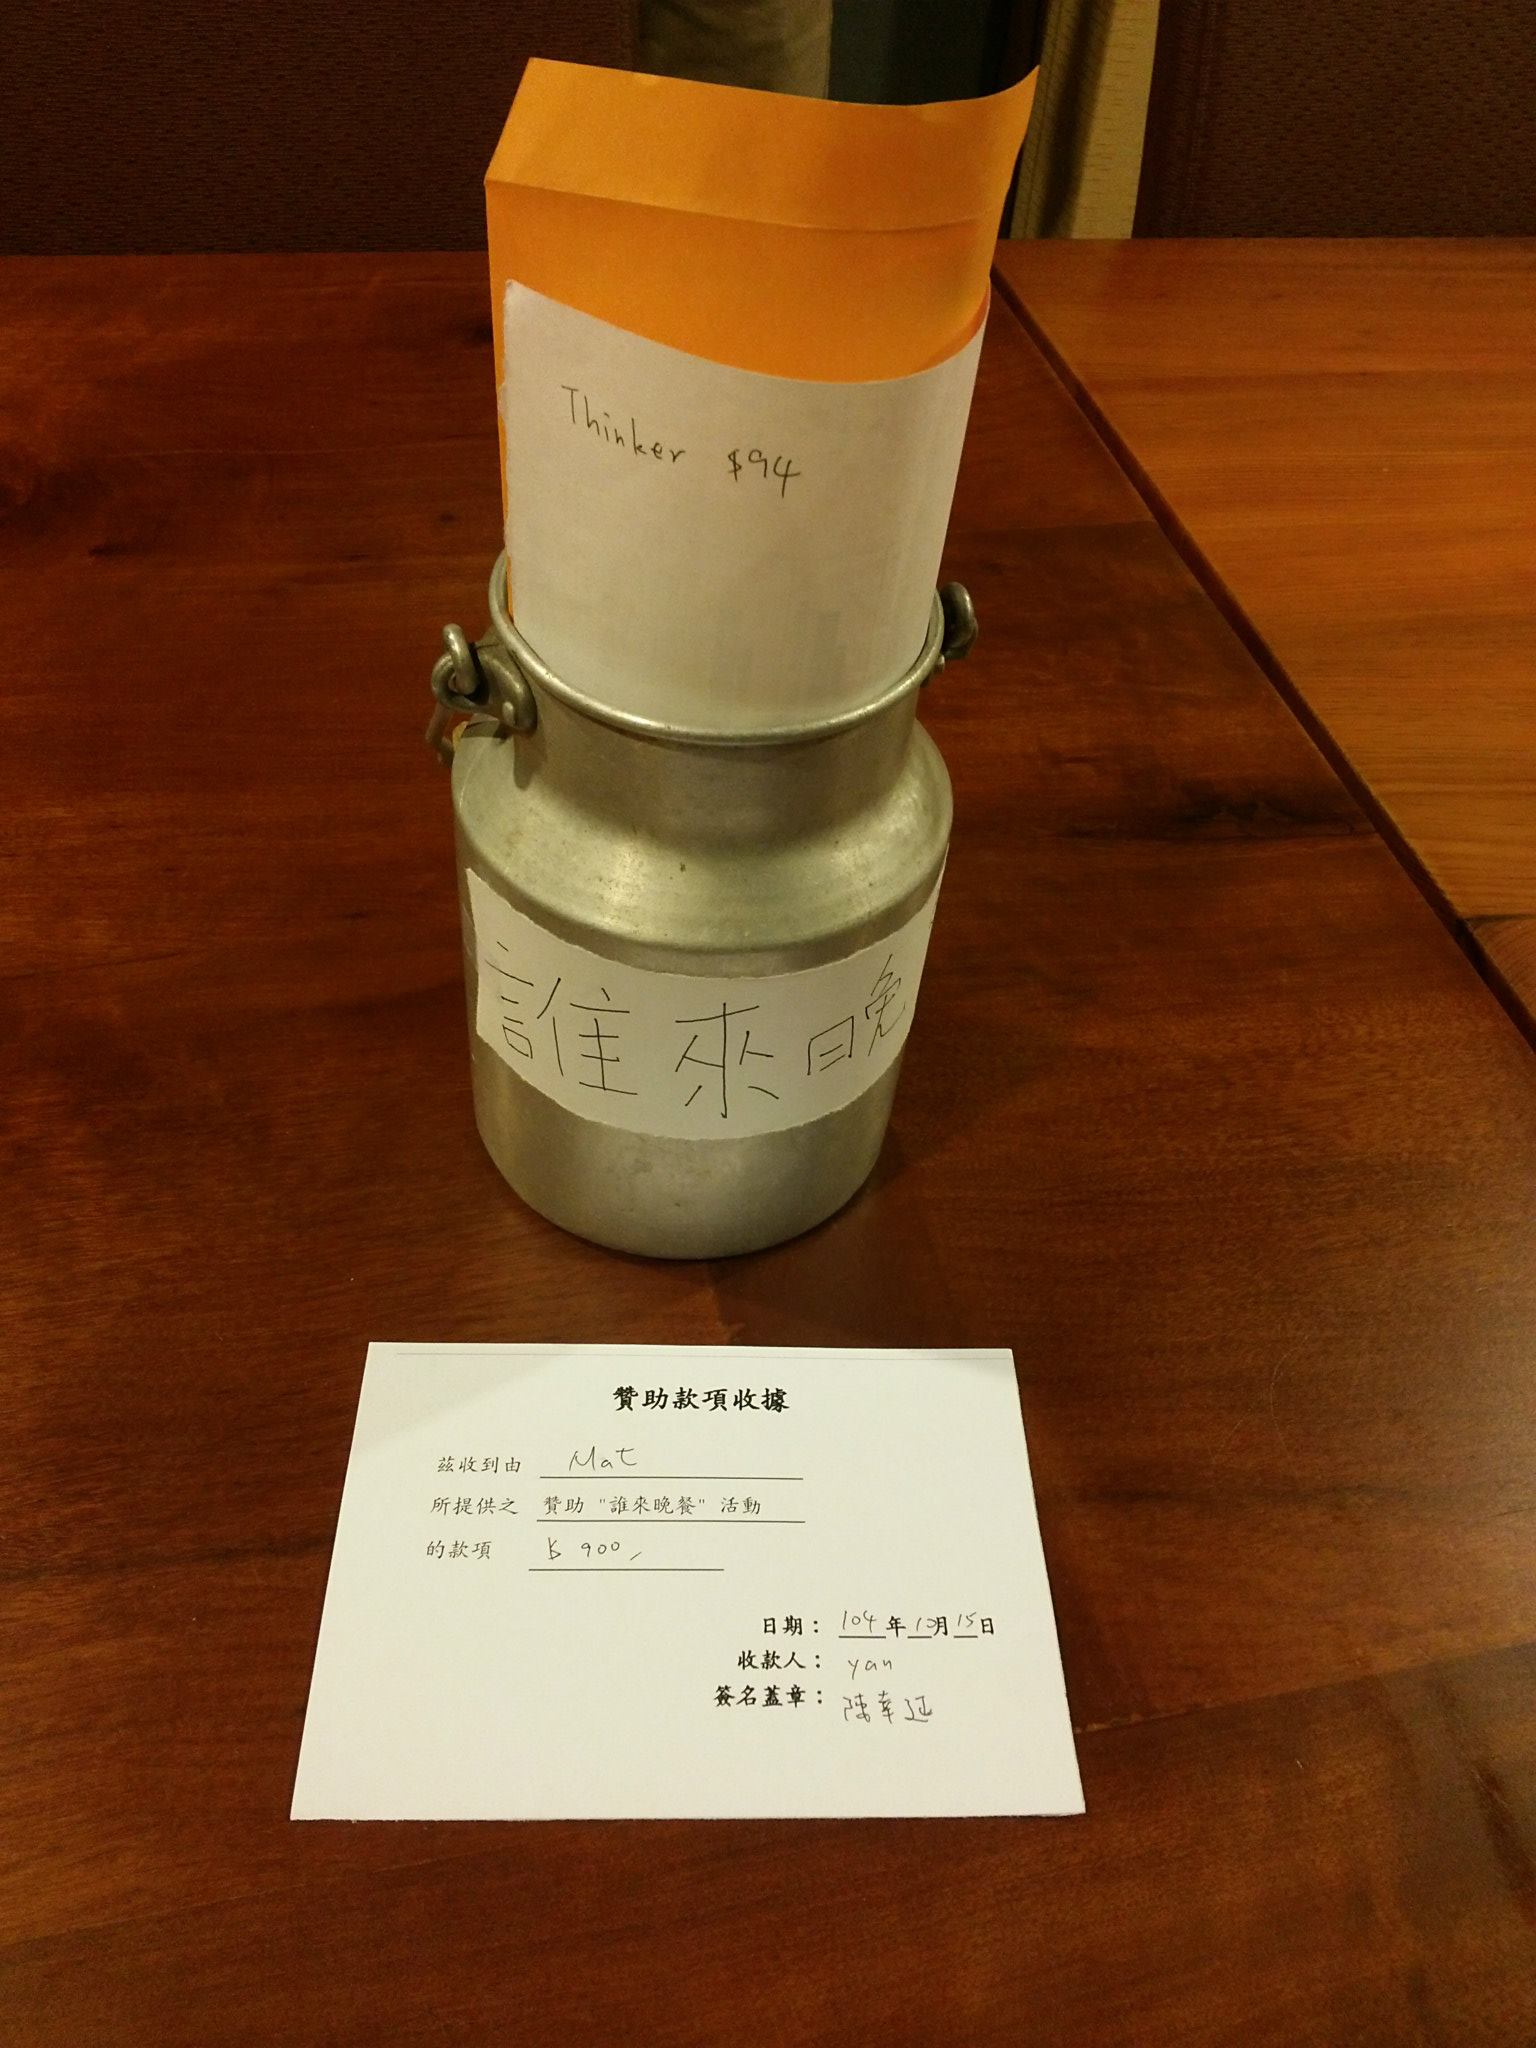 Thinker $94
誰來晚
贊助款項收據
茲收到由 Mat
所提供之 贊助 "誰來晚餐" 活動
的款項 $ 900,
日期： 104年10月15日
收款人： yan
簽名蓋章： 陳幸延